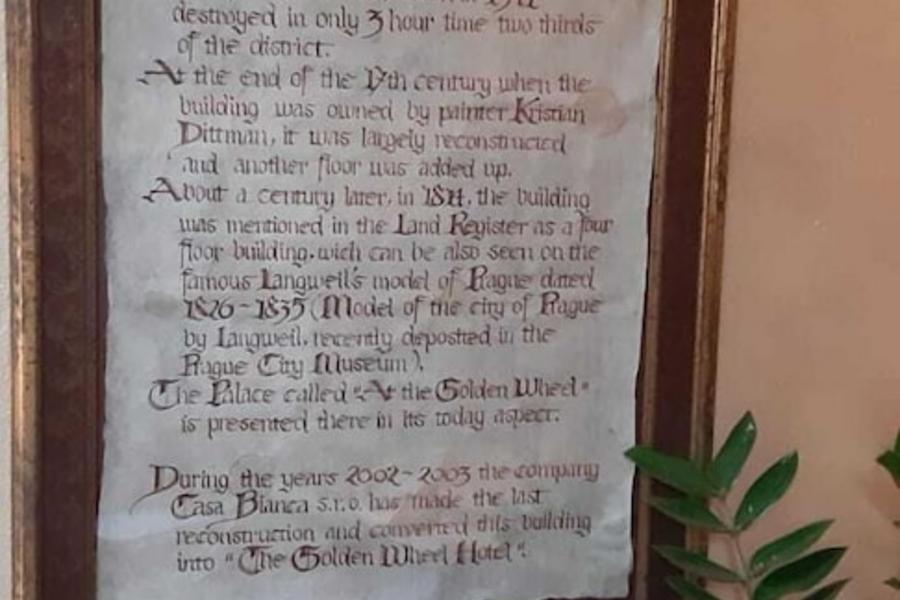 destroyed in only 3 hour time two thirds
of the district.
At the end of the 17th century when the
building was owned by painter Kristian
Dittman, it was largely reconstructed
and another floor was added up.
About a century later, in 1811, the building
was mentioned in the Land Register as a four
floor building, wich can be also seen on the
famous Langweil's model of Prague dated
1826-1835 (Model of the city of Prague
by Langweil, recently deposited in the
Prague City Museum).
The Palace called "At the Golden Wheel"
is presented there in its today aspect.
During the years 2002-2003 the company
Casa Bianca s.r.o. has made the last
reconstruction and converted this building
into "The Golden Wheel Hotel".